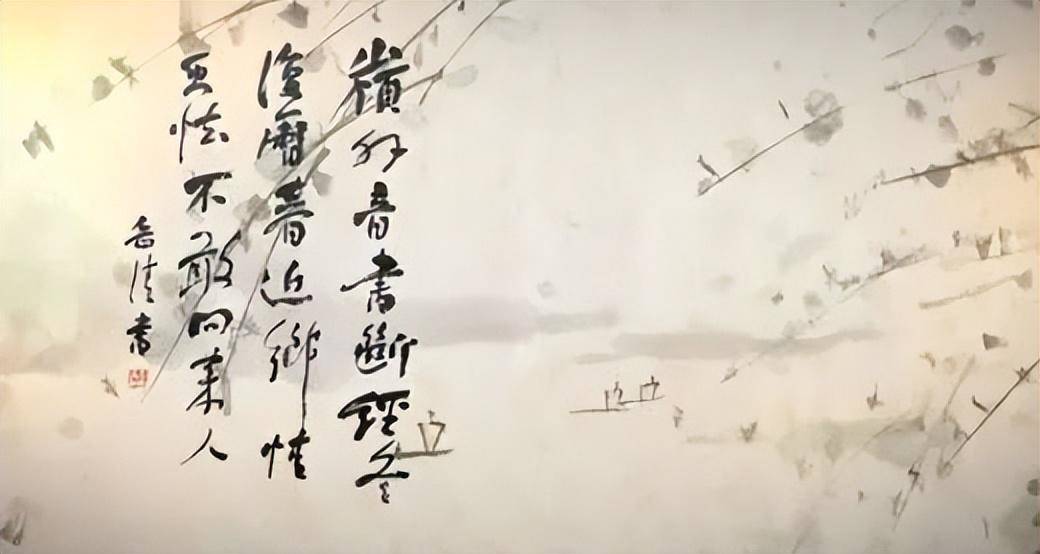 嶺外音書斷經冬
復曆春近鄉情
更怯不敢問來人
清書